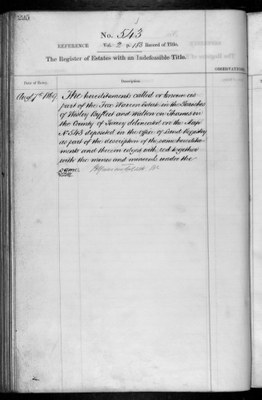 No. 543
REFERENCE Vol. 2 p. 113 Record of Title.
The Register of Estates with an Indefeasible Title.
OBSERVATIONS
Date of Entry.
Description.
The hereditaments called or known as
part of the Fox Warren Estate in the Parishes
of Wisley Byfleet and Walton on Thames in
the County of Surrey delineated on the Map
No 543 deposited in the office of Land Registry
as part of the description of the same heredita-
ments and therein edged with red together
with the mines and minerals under the
same